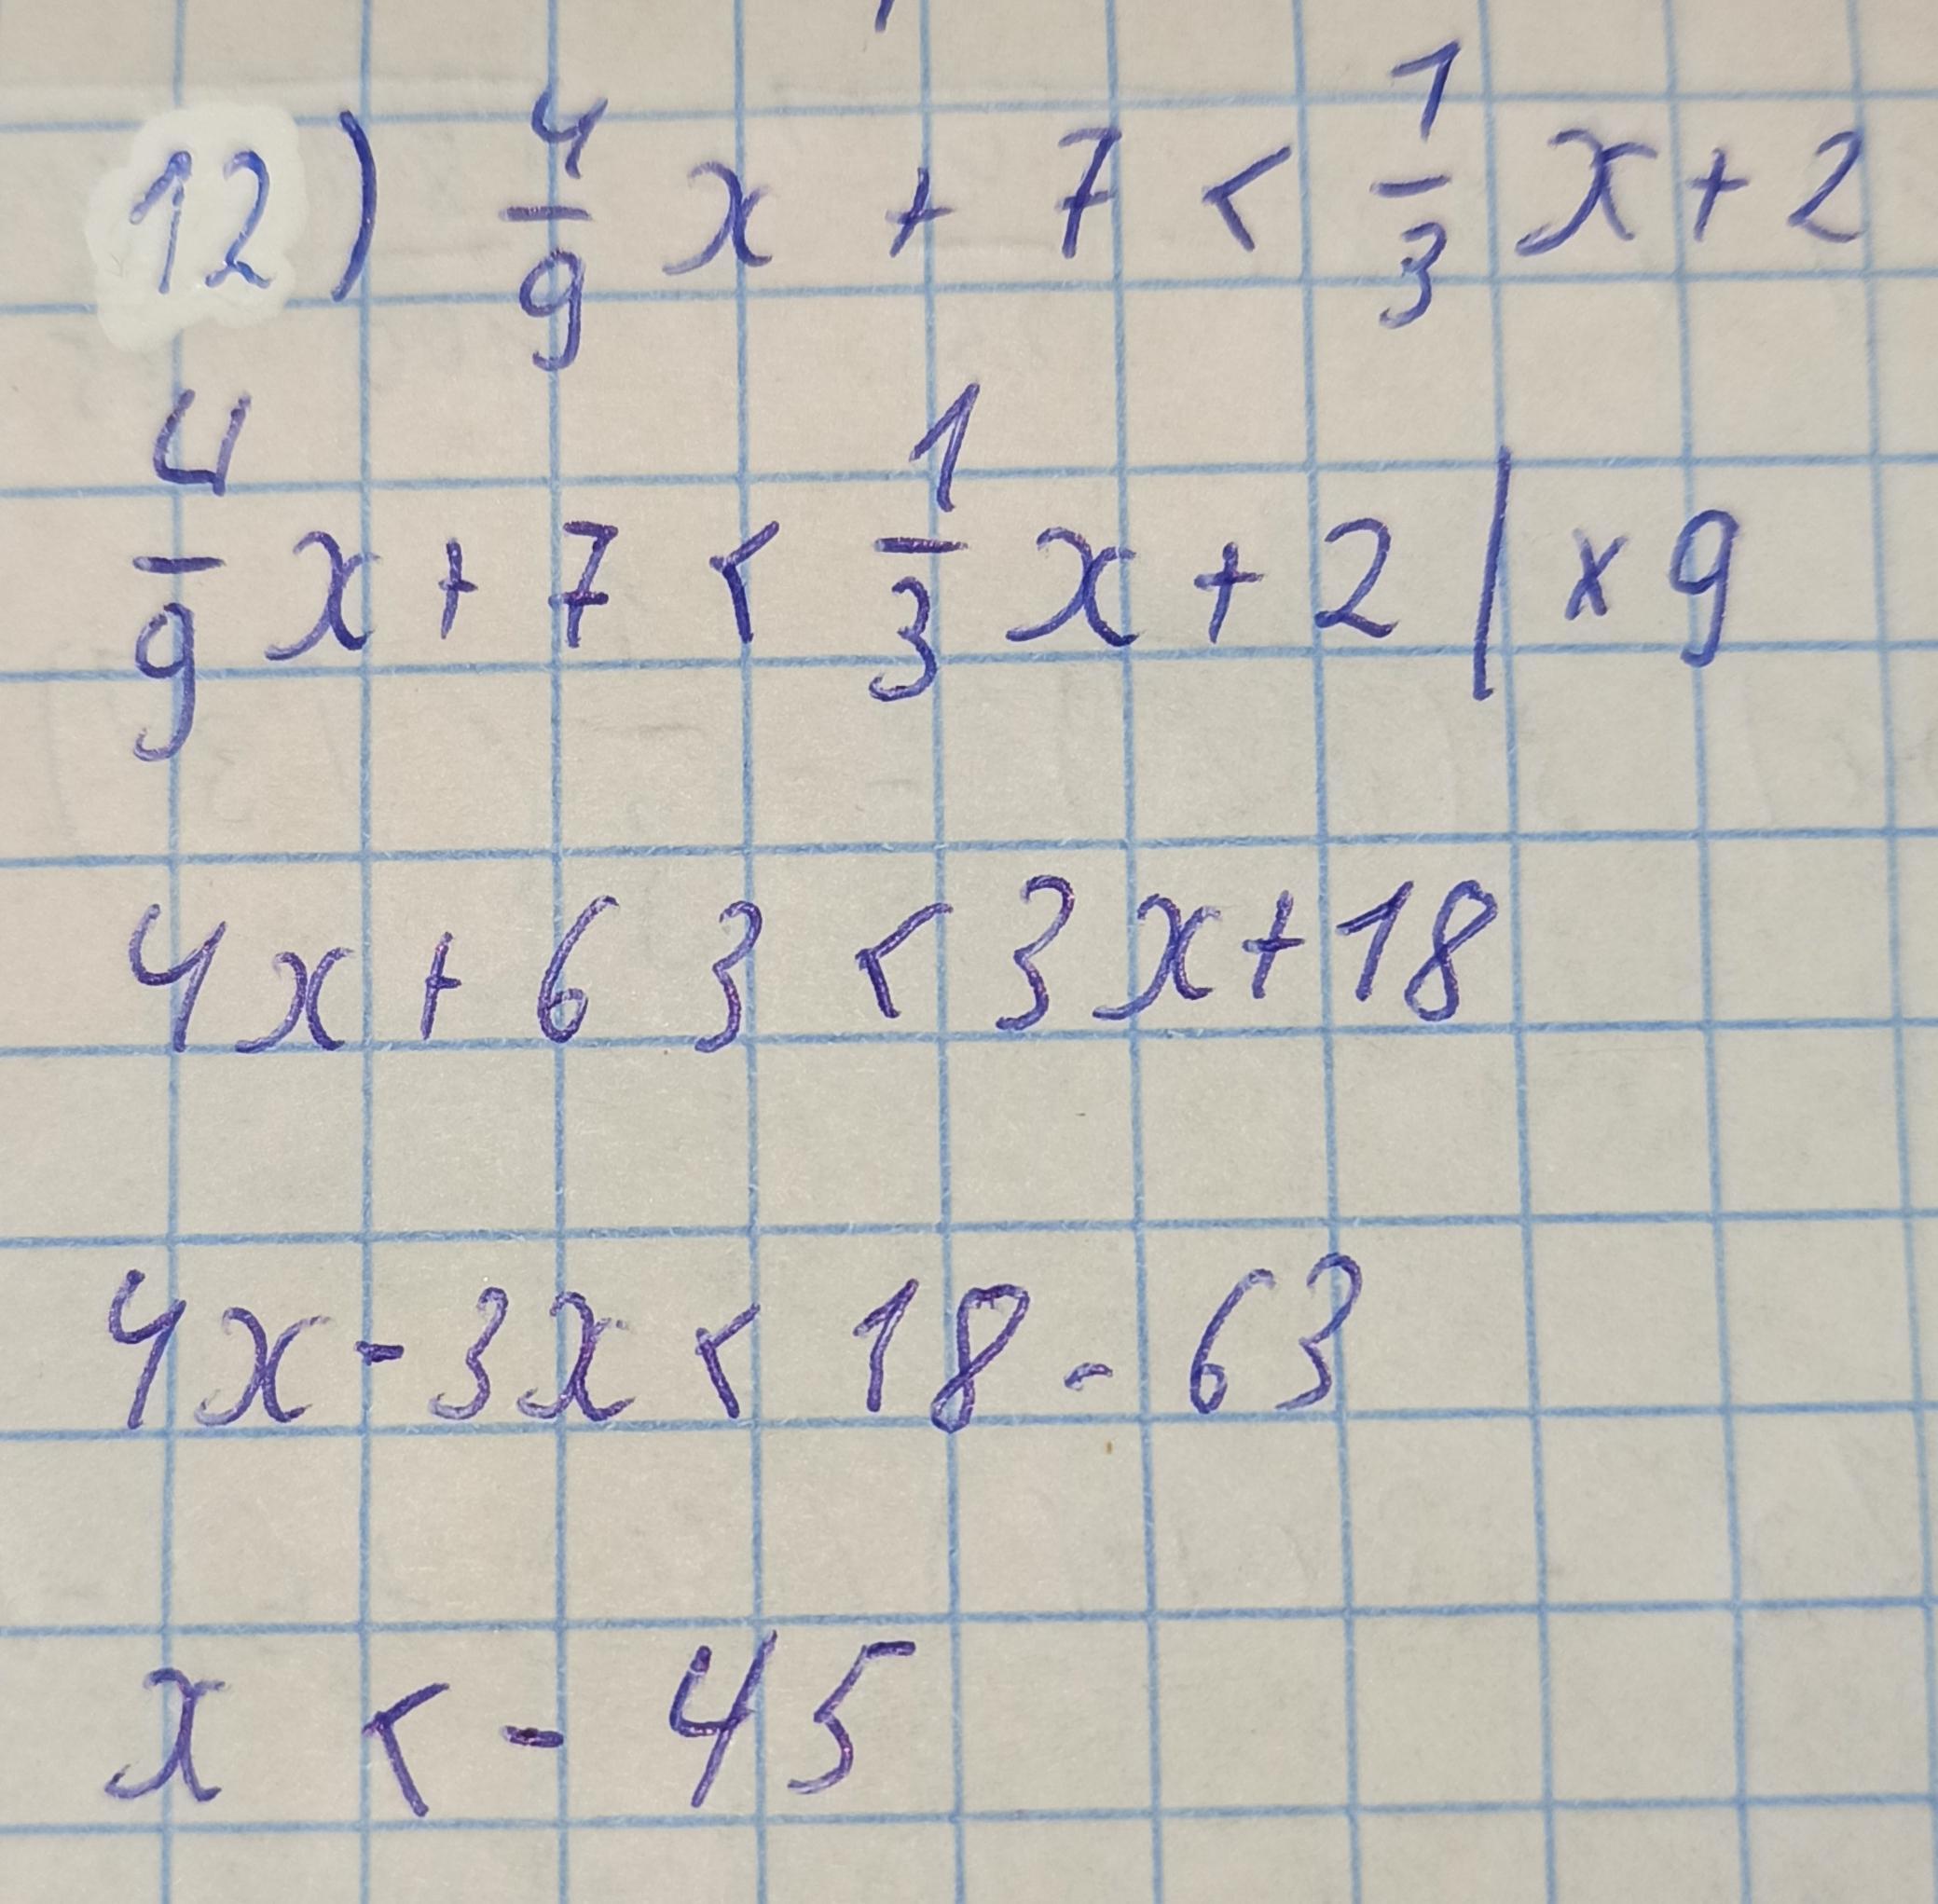 12) 4/9 x + 7 < 1/3 x + 2
4/9 x + 7 < 1/3 x + 2 | × 9
4x + 63 < 3x + 18
4x - 3x < 18 - 63
x < - 45